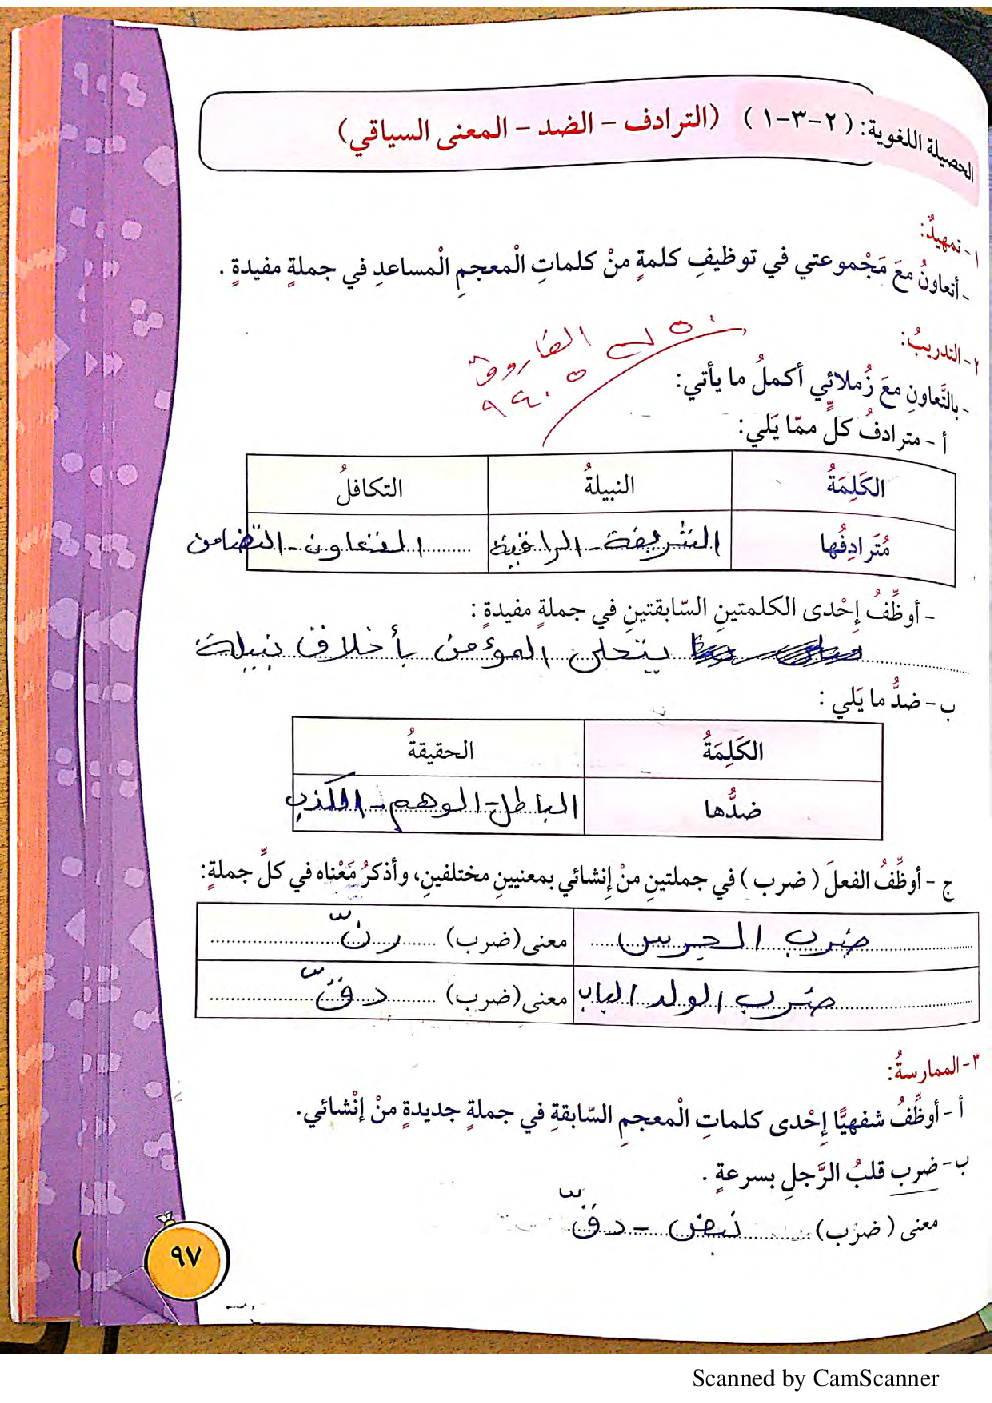 الحصيلة اللغوية: (٢-٣-١) (الترادف - الضد - المعنى السياقي)
١- تمهيدٌ:
- أتعاونُ معَ مَجْموعتي في توظيفِ كلمةٍ منْ كلماتِ الْمعجمِ الْمساعدِ في جملةٍ مفيدةٍ .
٢- التدريبُ:
- بالتَّعاونِ معَ زُملائي أكملُ ما يأتي:
أ - مترادفُ كلٍّ ممّا يَلي:
الكَلِمَةُ النبيلةُ التكافلُ
مُتَرادِفُها الشريفة - الراغبة التعاون - التضامن
- أوظِّفُ إحْدى الكلمتينِ السّابقتينِ في جملةٍ مفيدةٍ :
يتحلى المؤمن بأخلاق نبيلة
ب - ضدُّ ما يَلي :
الكَلِمَةُ الحقيقةُ
ضدُّها الباطل - الوهم - الكذب
ج - أوظِّفُ الفعلَ (ضرب) في جملتينِ منْ إنشائي بمعنيينِ مختلفينِ، وأذكرُ مَعْناه في كلِّ جملةٍ:
ضرب الجرس معنى (ضرب) رنّ
ضرب الولد الباب معنى (ضرب) دقّ
٣- الممارسةُ:
أ - أوظِّفُ شفهيًّا إحْدى كلماتِ الْمعجمِ السّابقةِ في جملةٍ جديدةٍ منْ إنْشائي.
ب- ضرب قلبُ الرَّجلِ بسرعةٍ .
معنى (ضرب) نبض - دقّ
٩٧
Scanned by CamScanner